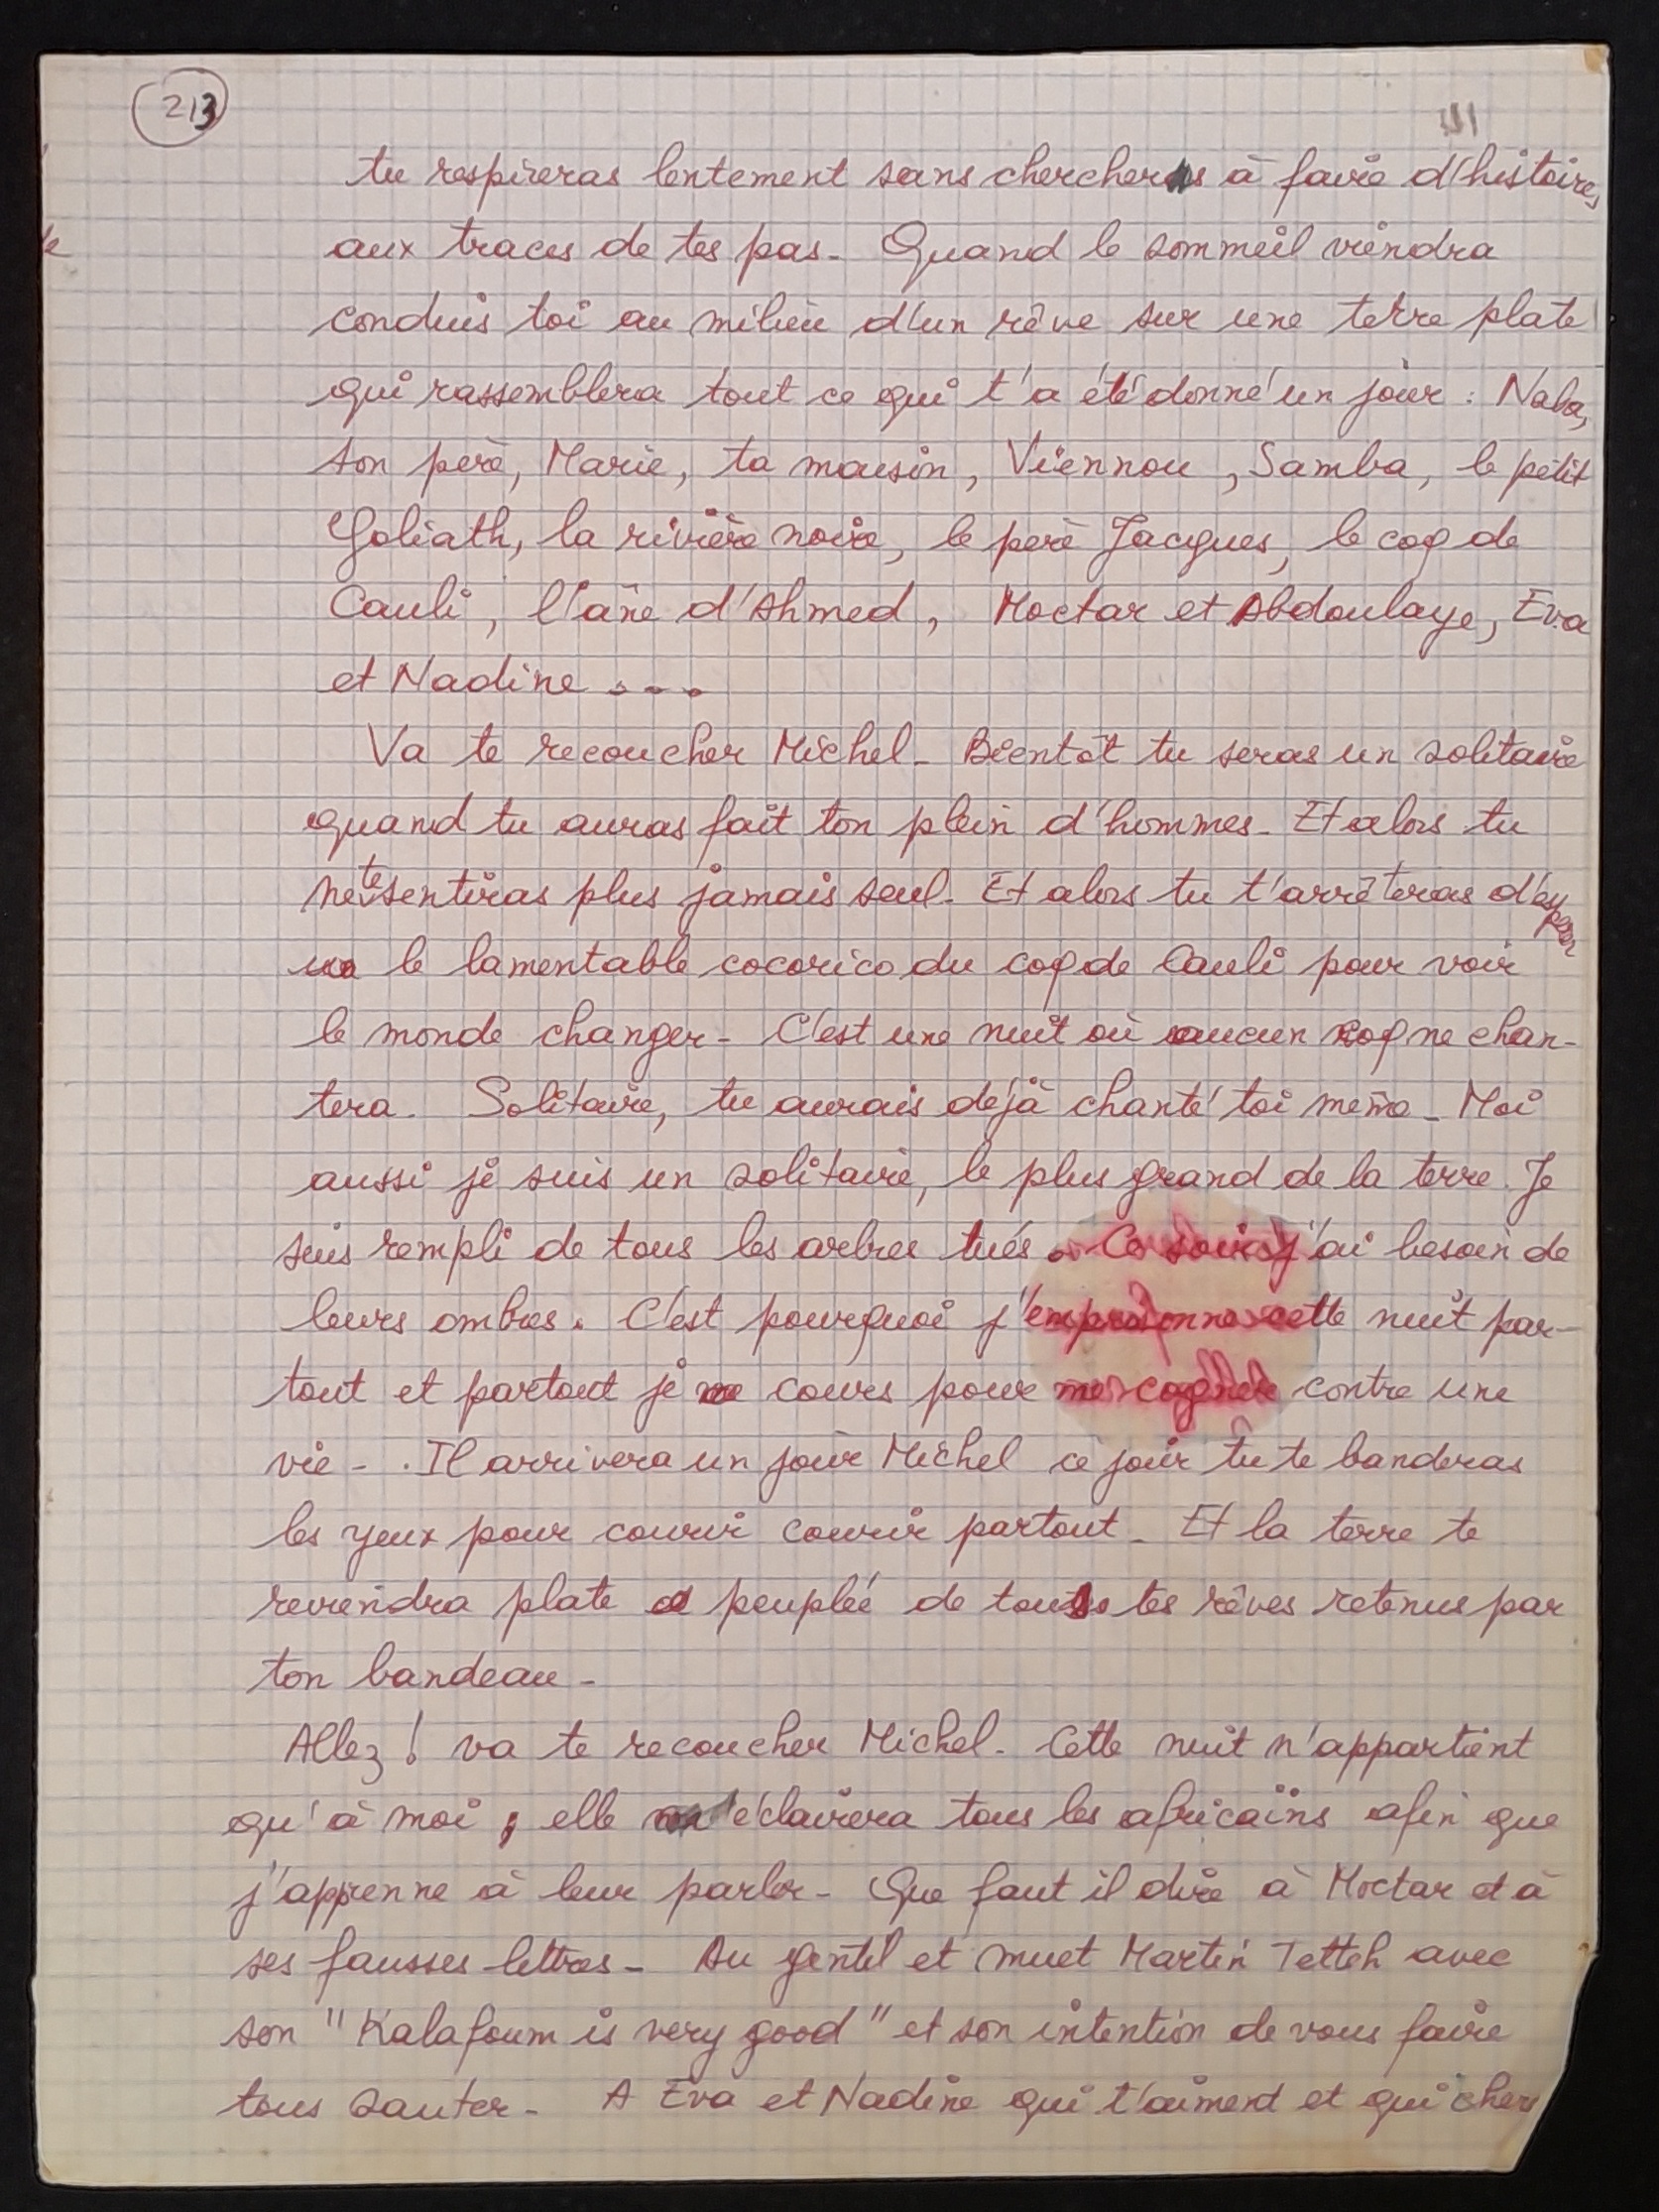 213
tu respireras lentement sans chercher à faire d'histoires
aux traces de tes pas. Quand le sommeil viendra
conduis toi au milieu d'un rêve sur une terre plate
qui rassemblera tout ce qui t'a été donné un jour : Naba,
son père, Marie, ta maison, Viennou, Samba, le petit
Goliath, la rivière noire, le père Jacques, le coq de
Cauli, l'âne d'Ahmed, Moctar et Abdoulaye, Eva
et Nadine ....
Va te recoucher Michel. Bientôt tu seras un solitaire
quand tu auras fait ton plein d'hommes. Et alors tu
ne te sentiras plus jamais seul. Et alors tu t'arrêteras d'espérer
le lamentable cocorico du coq de Cauli pour voir
le monde changer. C'est une nuit où aucun coq ne chan-
tera. Solitaire, tu aurais déjà chanté toi même. Moi
aussi je suis un solitaire, le plus grand de la terre. Je
suis rempli de tous les arbres tués. Ce soir j'ai besoin de
leurs ombres. C'est pourquoi j'emprisonne cette nuit par-
tout et partout je cours pour me cogner contre une
vie. Il arrivera un jour Michel ce jour tu te banderas
les yeux pour courir courir partout. Et la terre te
reviendra plate et peuplée de tous tes rêves retenus par
ton bandeau.
Allez ! va te recoucher Michel. Cette nuit n'appartient
qu'à moi ; elle éclairera tous les africains afin que
j'apprenne à leur parler. Que faut il dire à Moctar et à
ses fausses lettres. Au gentil et muet Martin Tetteh avec
son "Kalafoum is very good" et son intention de vous faire
tous sauter. A Eva et Nadine qui t'aiment et qui cher